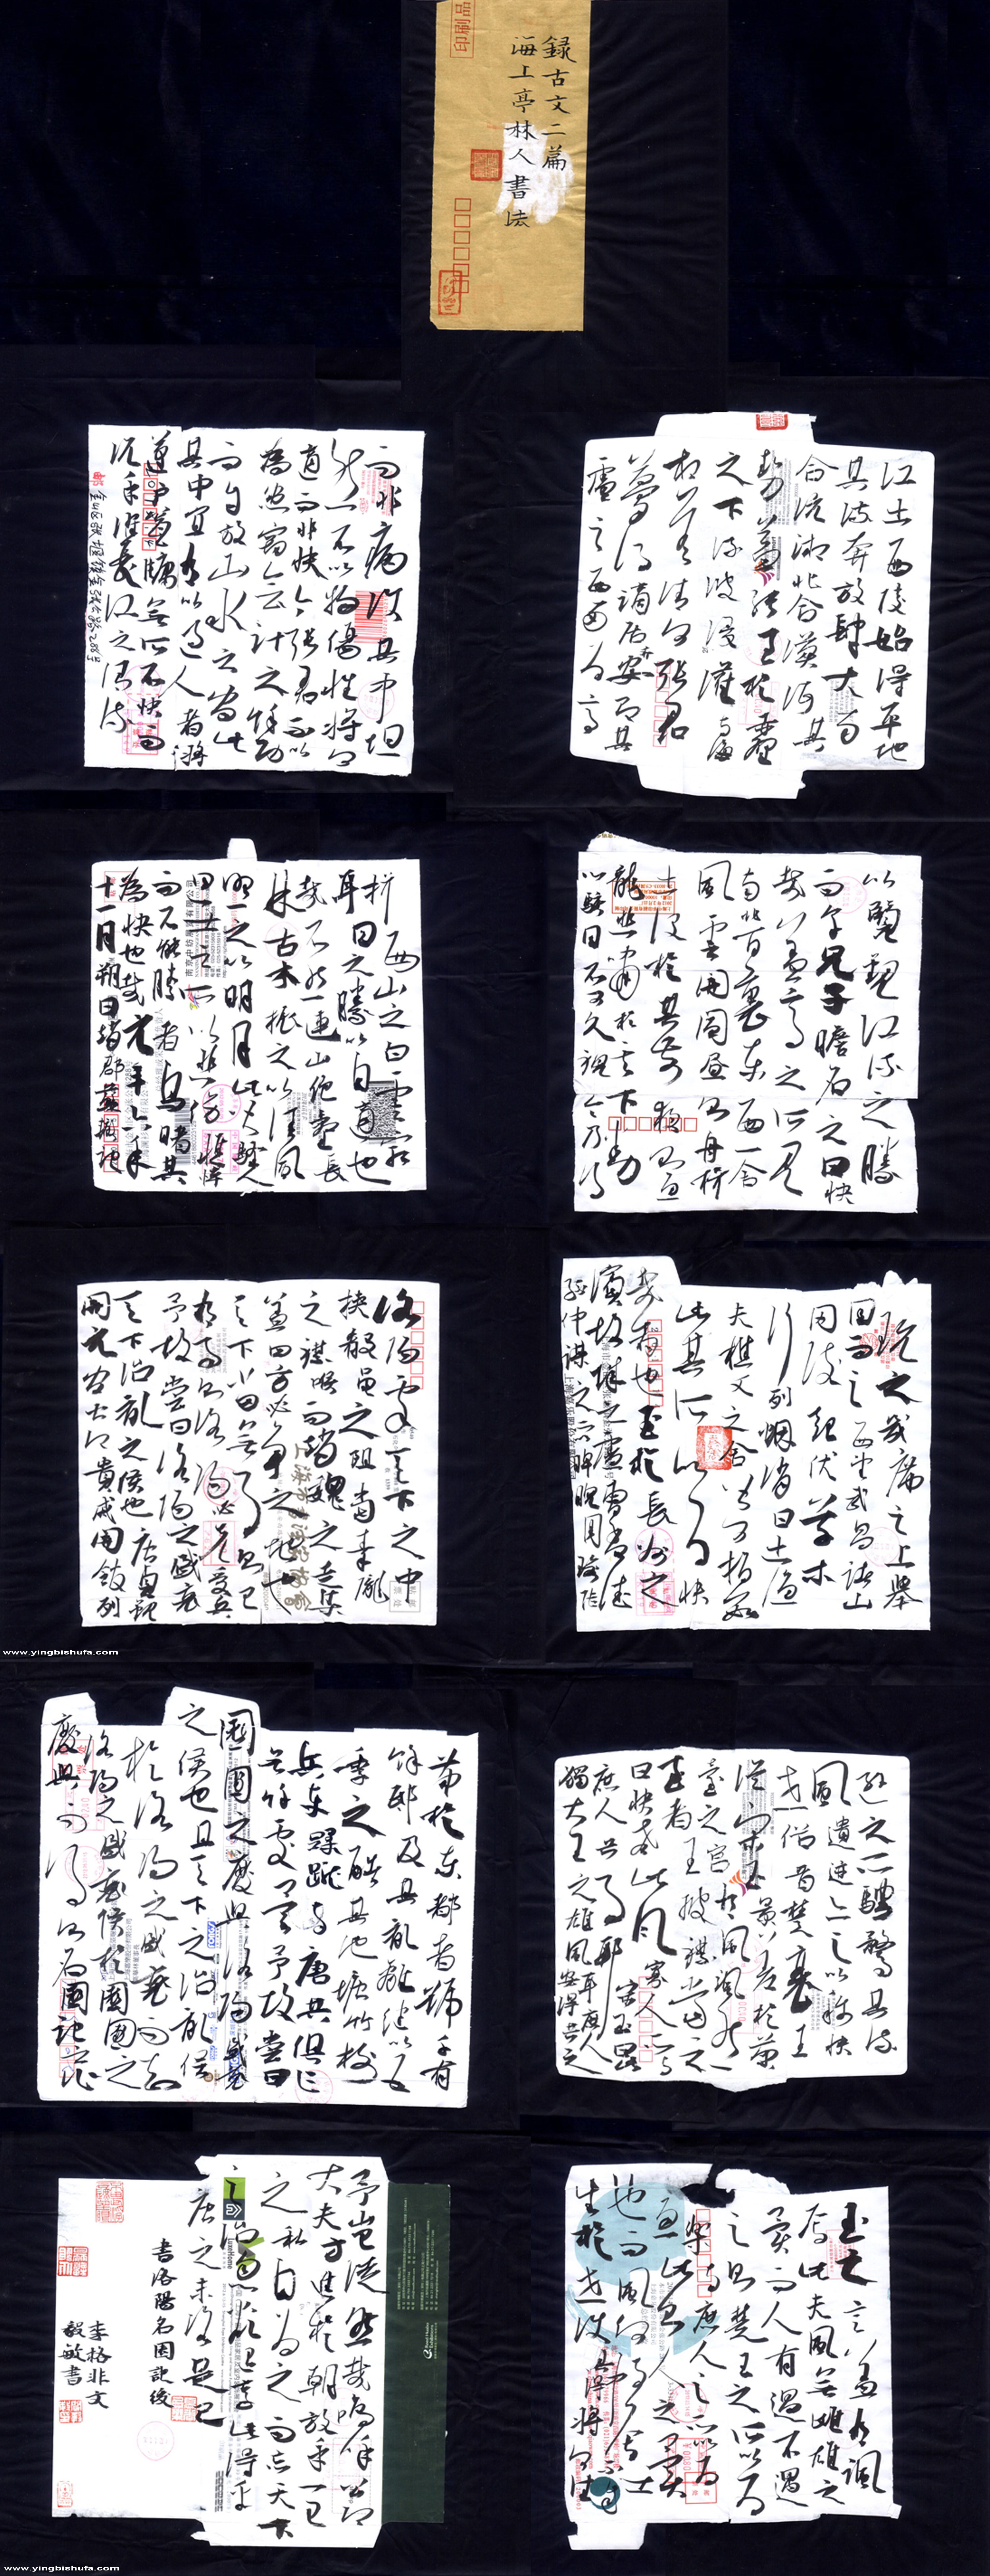 録古文二篇
海上亭林人書法
江出西陵始得平地
其流奔放肆大南
合沅湘北合漢沔其
勢益張至於赤壁
之下流波浸灌與海
相若清河張君
夢得謫居齊安即其
廬之西南為亭
以覽觀江流之勝
而余兄子瞻名之曰快
哉蓋亭之所見
南北百里東西一舍
風雲開闔晝則舟楫
出沒於其前夜則魚
龍悲嘯於其下動
心駭目不可久視今乃得
玩之几席之上舉
目而足西望武昌諸山
岡陵起伏草木
行列烟消日出漁
夫樵父之舍皆可指數
此其所以為快
哉者也至於長洲之
濱故城之墟曹孟德
孫仲謀之所睥睨周瑜陸
遜之所騁騖其流
風遺迹亦足以稱快
世俗昔楚襄王
從宋玉景差於蘭
臺之宮有風颯然
至者王披襟當之
曰快哉此風寡人所與
庶人共者耶宋玉曰此
獨大王之雄風耳庶人安得共之
玉之言蓋有諷
焉夫風無雌雄之
異而人有遇不遇
之變楚王之所以為
樂與庶人之所以為
憂此則人之變
也而風何與焉士
生於世使其中不自得將何往
而非病使其中坦
然不以物傷性將何
適而非快今張君不以
為患竊會計之餘功
而自放山水之間此
其中宜有以過人者將
蓬戶甕牖無所不快而
況乎濯長江之清流
挹西山之白雲窮
耳目之勝以自適也
哉不然連山絕壑長
林古木振之以清風
照之以明月此皆騷人
思士之所以悲傷憔悴
而不能勝者烏睹其
為快也哉元豐六年
十一月朔日趙郡蘇轍記
洛陽處天下之中
挾殽黽之阻當秦隴
之襟喉而趙魏之走集
蓋四方必爭之地也
天下常無事則已
有事則洛陽必先受兵
予故嘗曰洛陽之盛衰
天下治亂之候也唐貞觀
開元之間公卿貴戚開館列
第於東都者號千有
餘邸及其亂離繼以五
季之酷其池塘竹樹
兵車蹂蹴與唐共俱亡
無餘處矣予故嘗曰
園囿之廢興洛陽盛衰
之候也且天下之治亂候
於洛陽之盛衰而知
洛陽之盛衰候於園囿之
廢興而得則名園記之作
予豈徒然哉嗚呼公卿
大夫方進於朝放乎一己
之私自為之而忘天下
之治忽欲退享此得乎
唐之末路是已
書洛陽名園記後
李格非文
毅敏書
www.yingbishufa.com
www.yingbishufa.com